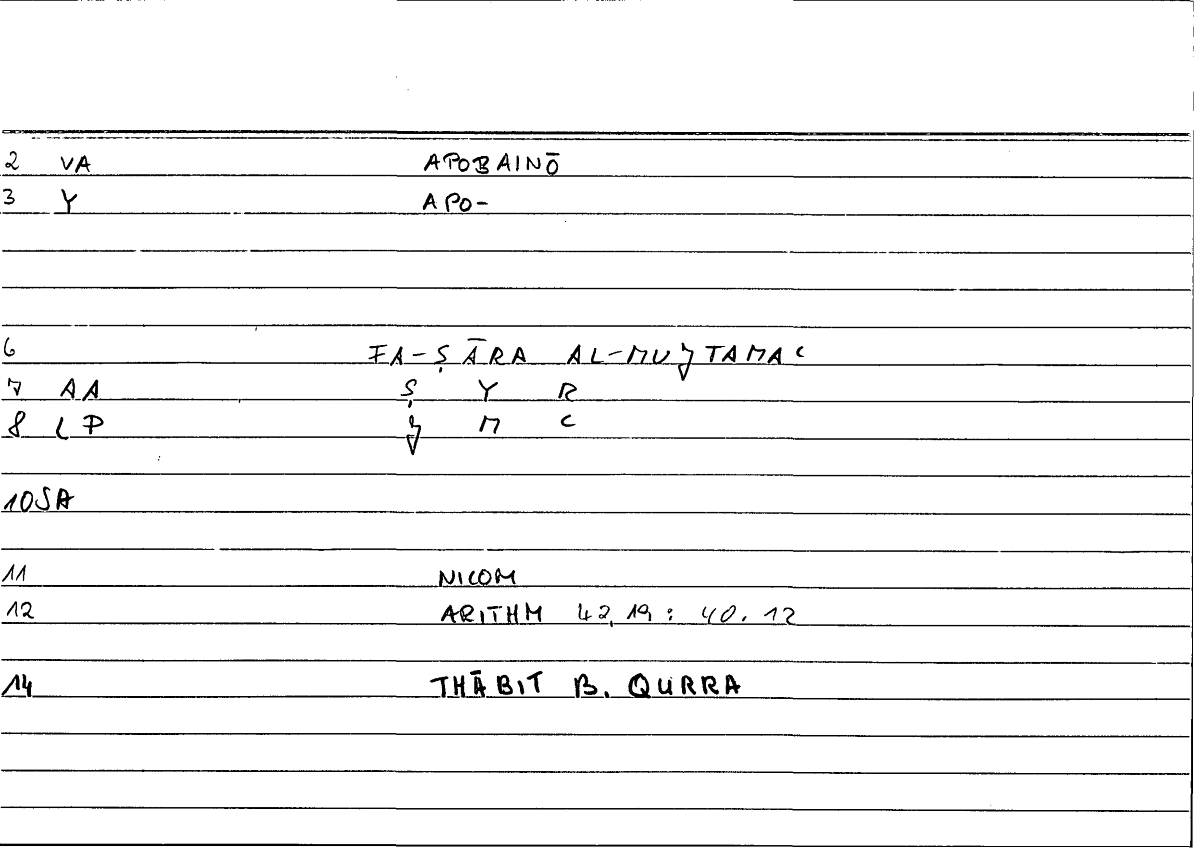 2 VA APOBAINŌ
3 Y APO-
6 FA-ṢĀRA AL-MUǦTAMAʿ
7 AA Ṣ Y R
8 LP Ǧ M ʿ
10 SA
11 NICOM
12 ARITHM 42,19 : 40.12
14 THĀBIT B. QURRA